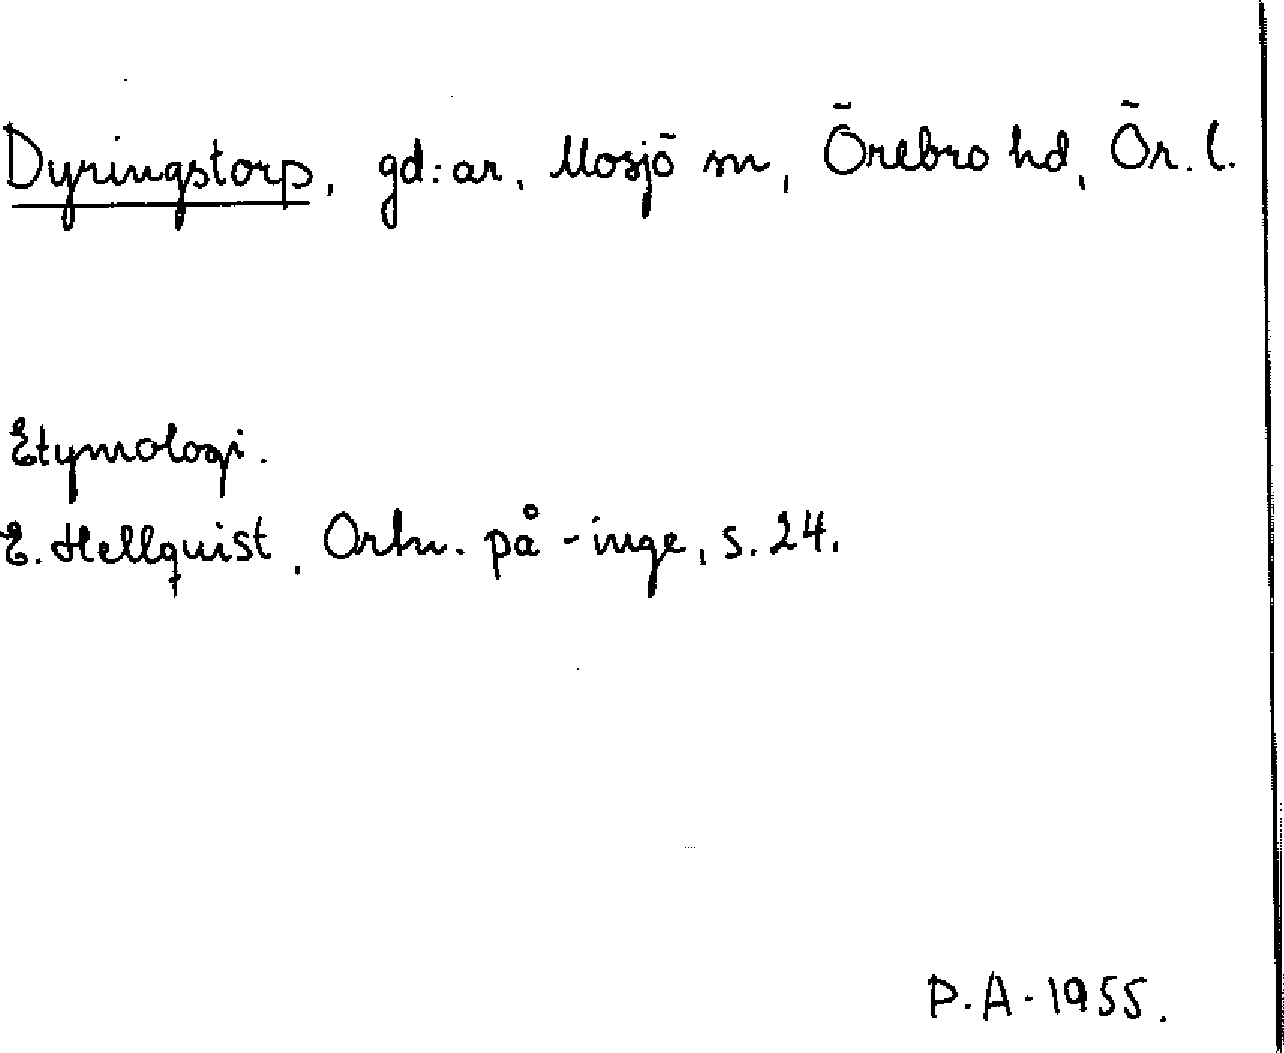 Dyringstorp, gd:ar, Mosjö sn, Örebro hd, Ör. l.
Etymologi.
E. Hellquist, Ortn. på -inge, s. 24.
P.A. 1955.